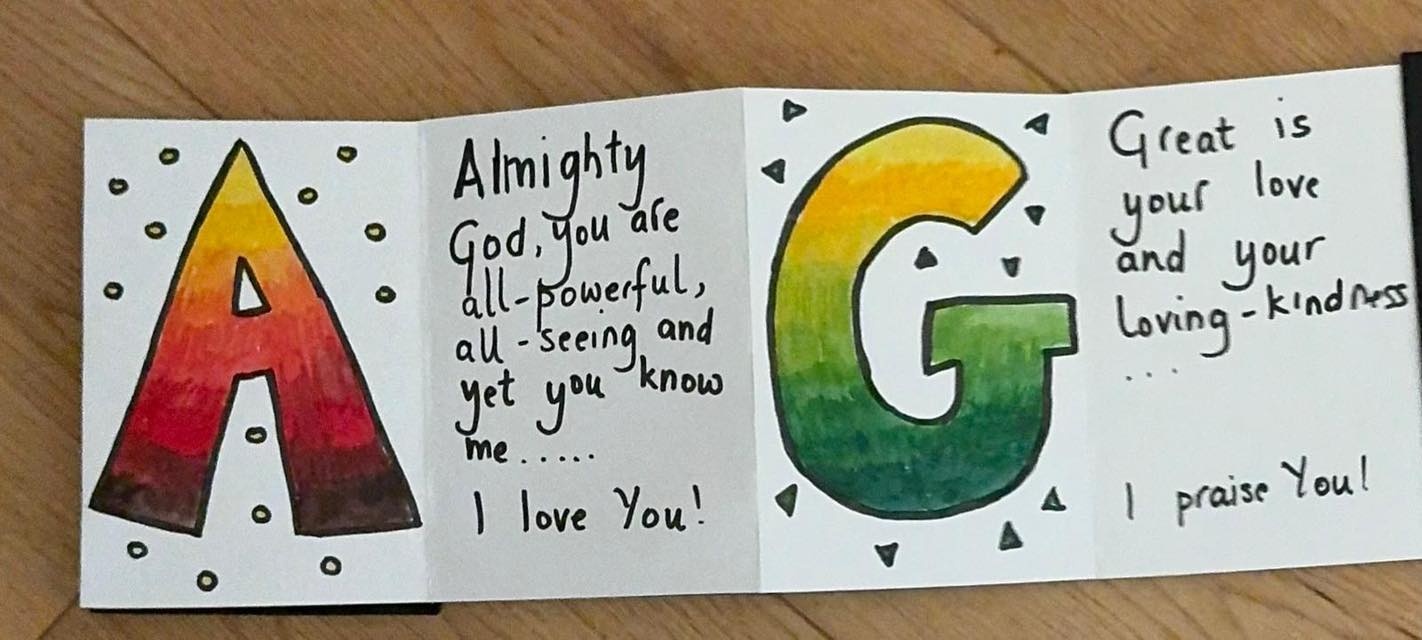 A
Almighty
God, you are
all-powerful,
all-seeing and
yet you know
me.....
I love You!
G
Great is
your love
and your
loving-kindness
...
I praise You!